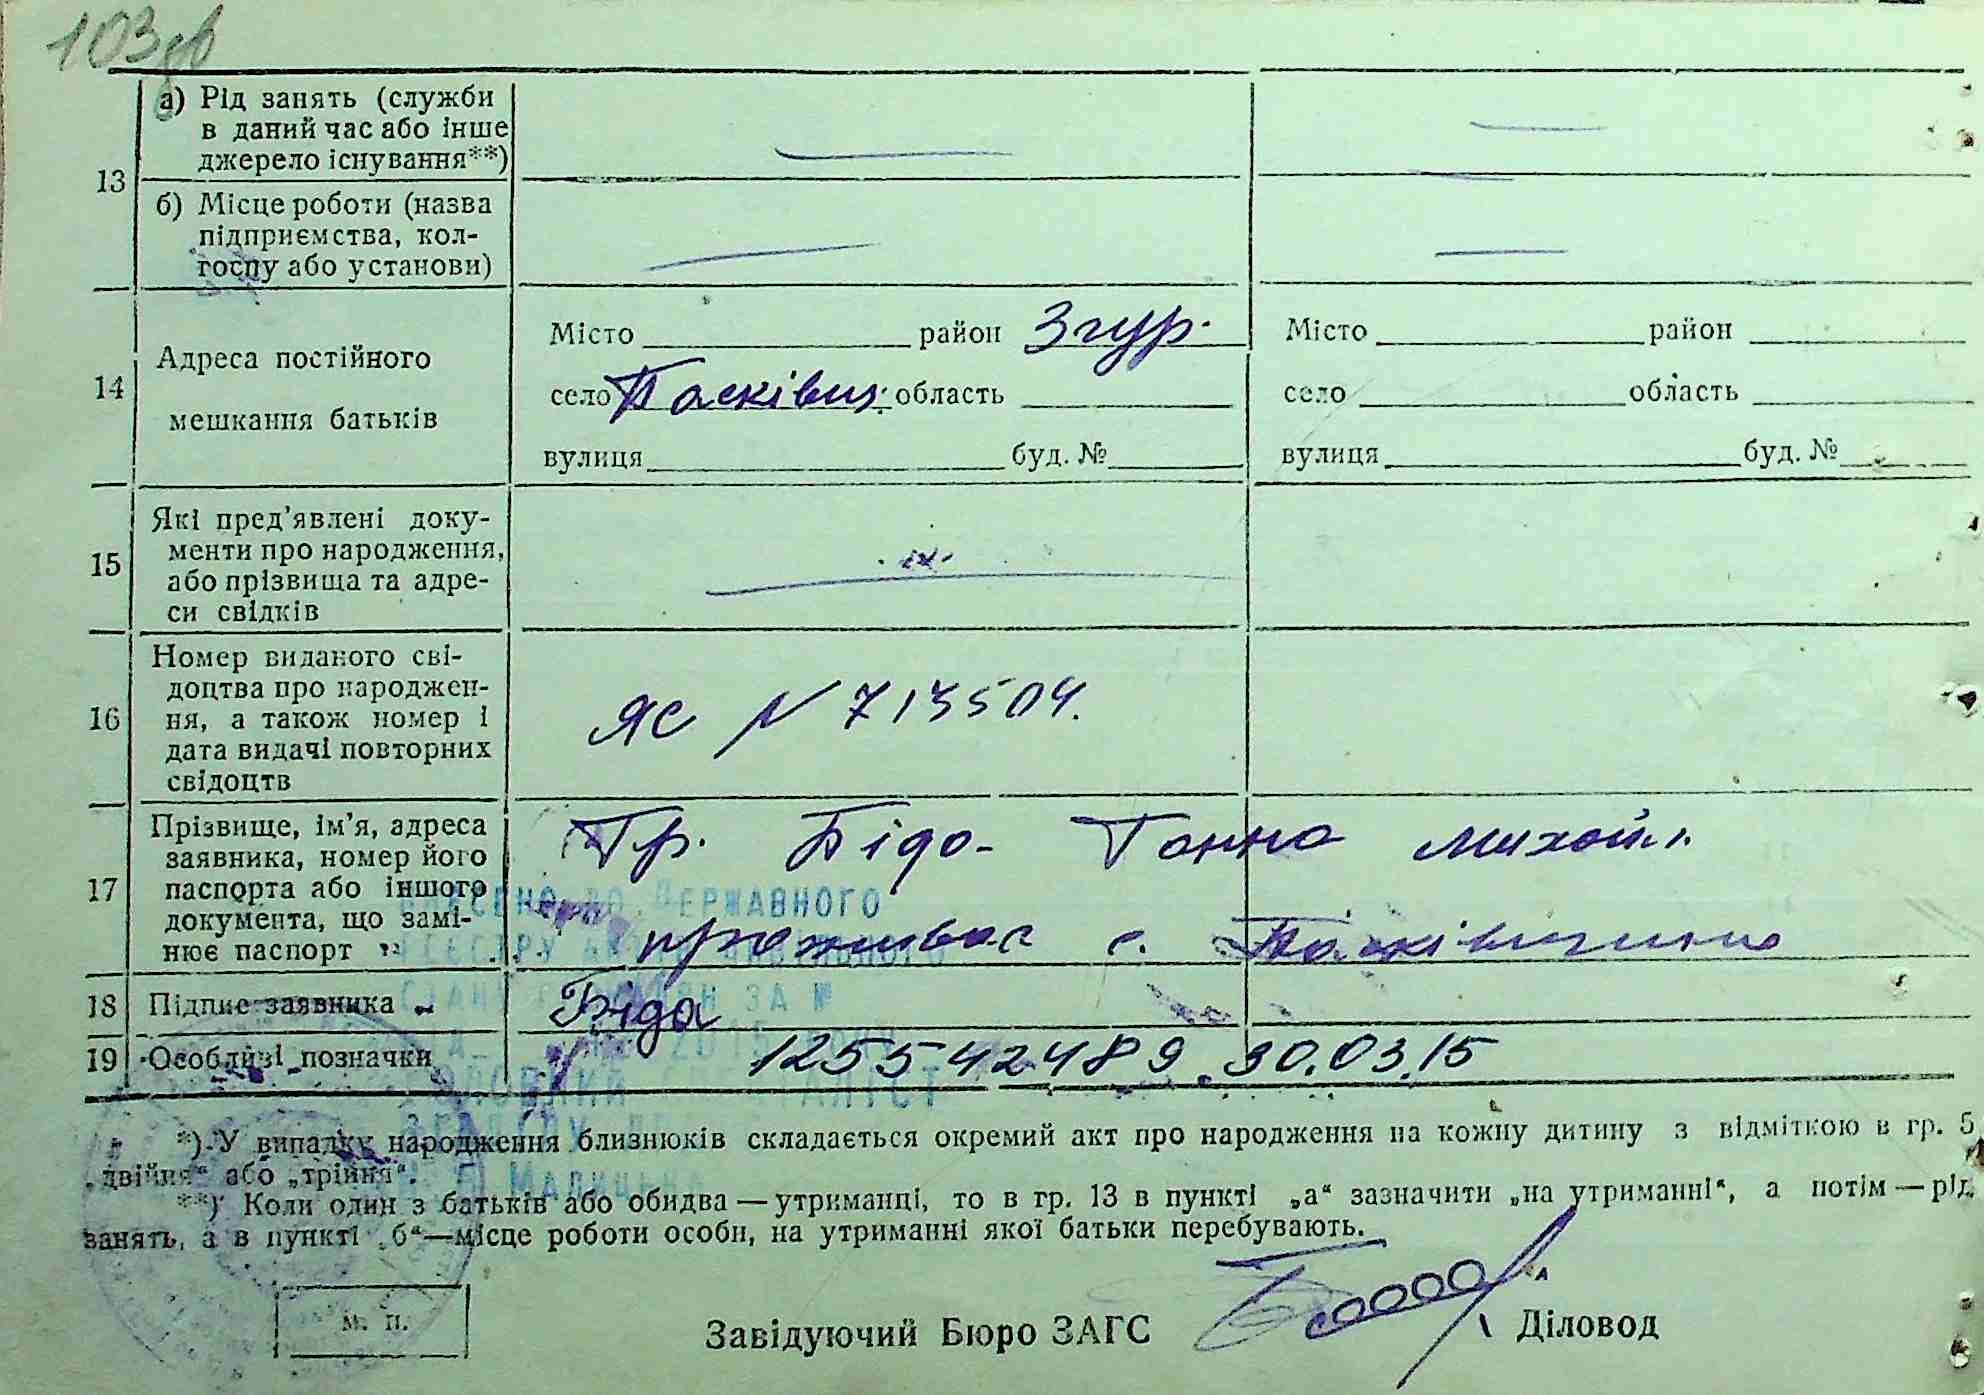 103 зв
а) Рід занять (служби
в даний час або інше
джерело існування**)
13
б) Місце роботи (назва
підприємства, кол-
госпу або установи)
Місто район Згур. Місто район
14 Адреса постійного
село Пасківщ. область село область
мешкання батьків
вулиця буд. № вулиця буд. №
15 Які пред'явлені доку-
менти про народження,
або прізвища та адре-
си свідків
16 Номер виданого сві-
доцтва про народжен-
ня, а також номер і
дата видачі повторних
свідоцтв
ЯС № 713504.
17 Прізвище, ім'я, адреса
заявника, номер його
паспорта або іншого
документа, що замі-
нює паспорт
Гр. Біда Ганна Михайл.
проживає с. Пасківщина
18 Підпис заявника Біда
19 Особливі позначки 125542489 30.03.15
ДЕРЖАВНОГО
*) У випадку народження близнюків складається окремий акт про народження на кожну дитину з відміткою в гр. 5
„двійня“ або „трійня“.
**) Коли один з батьків або обидва — утриманці, то в гр. 13 в пункті „а“ зазначити „на утриманні“, а потім — рід
занять, а в пункті „б“—місце роботи особи, на утриманні якої батьки перебувають.
М. П.
Завідуючий Бюро ЗАГС Діловод